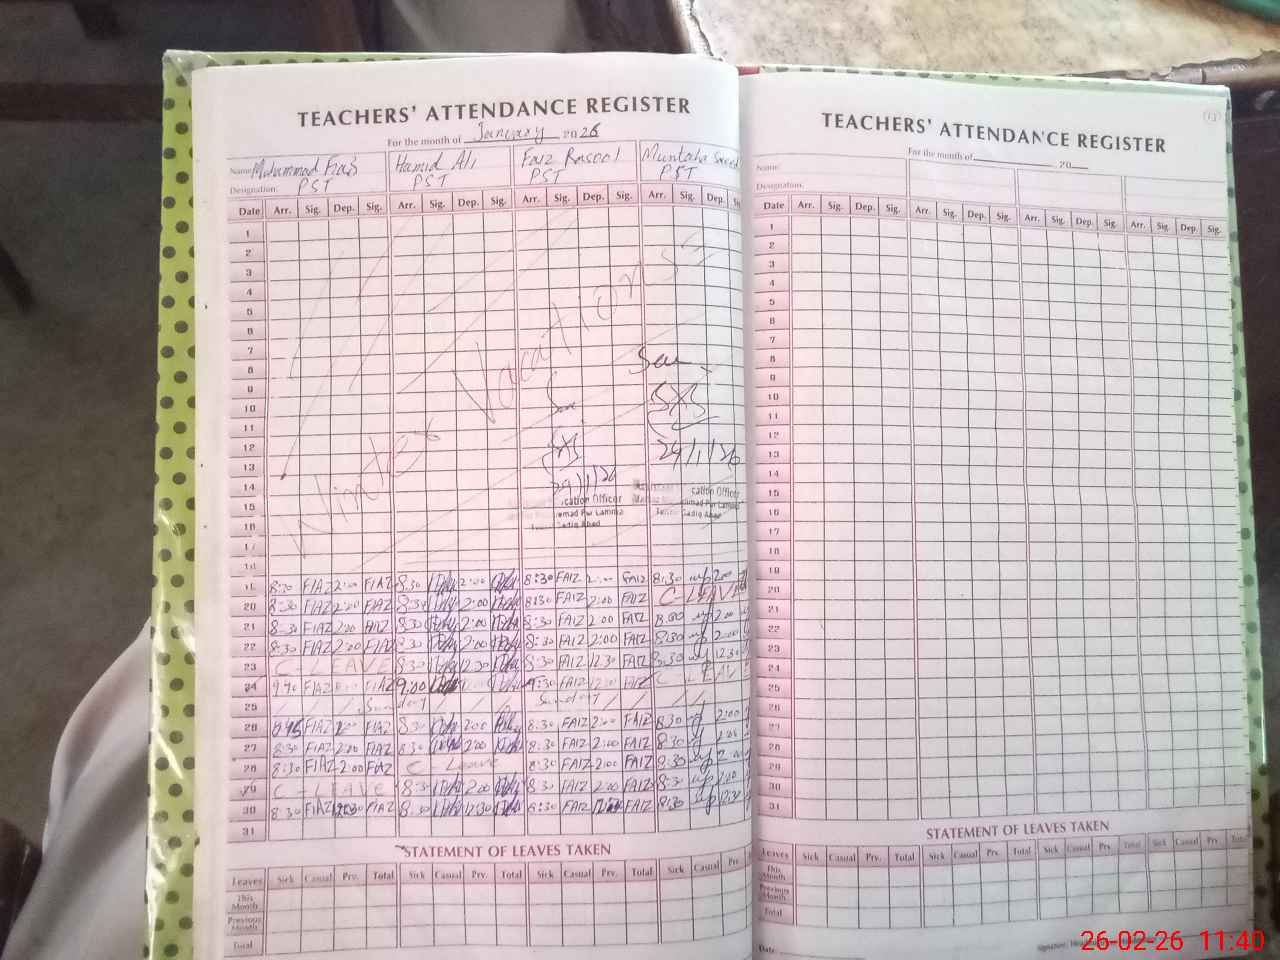 TEACHERS' ATTENDANCE REGISTER
For the month of January 2026
Name: Muhammad Fiaz Hamid Ali Faiz Rasool Muntaha Saeed
Designation: PST PST PST PST
Date Arr. Sig. Dep. Sig. Arr. Sig. Dep. Sig. Arr. Sig. Dep. Sig. Arr. Sig. Dep.
1
2
3
4
5
6
7
8
9
10
11
12
13
14
15
16
17
Winter Vacations
29/1/26
29/1/26
cation Officer
cation Officer
19 8:30 FIAZ 2:00 FIAZ 8:30 2:00 8:30 FAIZ FAIZ 8:30 2:00
20 8:30 FIAZ 2:00 FIAZ 8:30 2:00 8:30 FAIZ 2:00 FAIZ C-LEAVE
21 8:30 FIAZ 2:00 FIAZ 8:30 2:00 8:30 FAIZ 2:00 FAIZ
22 8:30 FIAZ 2:00 FIAZ 8:30 2:00 8:30 FAIZ 2:00 FAIZ 8:30 2:00
23 C-LEAVE 8:30 12:30 8:30 FAIZ 12:30 FAIZ 8:30 12:30
24 FIAZ FIAZ 9:00 FAIZ FAIZ
25 Sunday Sunday
26 FIAZ FIAZ 8:30 2:00 8:30 FAIZ 2:00 FAIZ 8:30 2:00
27 8:30 FIAZ 2:00 FIAZ 8:30 2:00 8:30 FAIZ 2:00 FAIZ 8:30 2:00
28 8:30 FIAZ 2:00 FIAZ C-Leave 8:30 FAIZ 2:00 FAIZ 8:30 2:00
29 C-LEAVE 8:30 2:00 8:30 FAIZ 2:00 FAIZ 8:30 2:00
30 8:30 FIAZ FIAZ 8:30 12:30 8:30 FAIZ FAIZ 8:30 12:30
31
STATEMENT OF LEAVES TAKEN
Leaves Sick Casual Prv. Total Sick Casual Prv. Total Sick Casual Prv. Total Sick Casual Prv.
This Month
Previous Month
Total
TEACHERS' ATTENDANCE REGISTER
For the month of 20
Name:
Designation:
Date Arr. Sig. Dep. Sig. Arr. Sig. Dep. Sig. Arr. Sig. Dep. Sig. Arr. Sig. Dep. Sig.
1
2
3
4
5
6
7
8
9
10
11
12
13
14
15
16
17
18
19
20
21
22
23
24
25
26
27
28
29
30
31
STATEMENT OF LEAVES TAKEN
Leaves Sick Casual Prv. Total Sick Casual Prv. Total Sick Casual Prv. Total Sick Casual Prv. Total
This Month
Previous Month
Total
Date
26-02-26 11:40